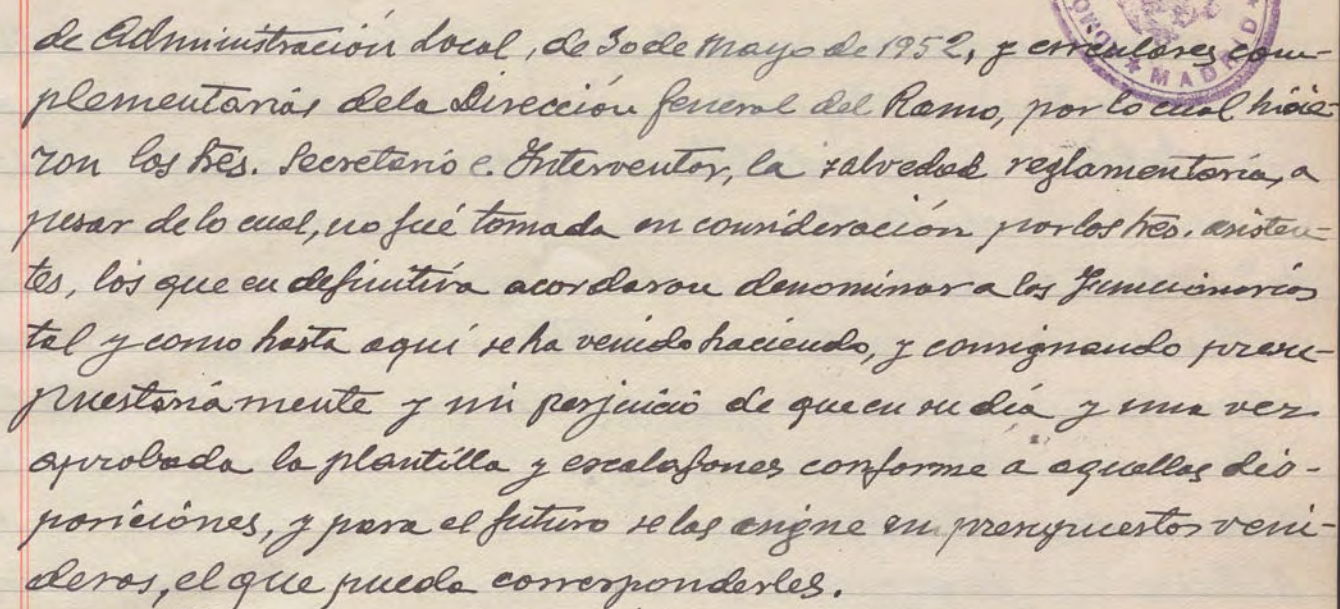 MADRID
de Administración Local, de 30 de Mayo de 1952, y circulares com-
plementarias de la Dirección General del Ramo, por lo cual hicie-
ron los Sres. Secretario e Interventor, la salvedad reglamentaria, a
pesar de lo cual, no fué tomada en consideración por los Sres. asisten-
tes, los que en definitiva acordaron denominar a los Funcionarios
tal y como hasta aquí se ha venido haciendo, y consignando presu-
puestariamente y sin perjuicio de que en su día y una vez
aprobada la plantilla y escalafones conforme a aquellas dis-
posiciones, y para el futuro se las asigne en presupuestos veni-
deros, el que pueda corresponderles.